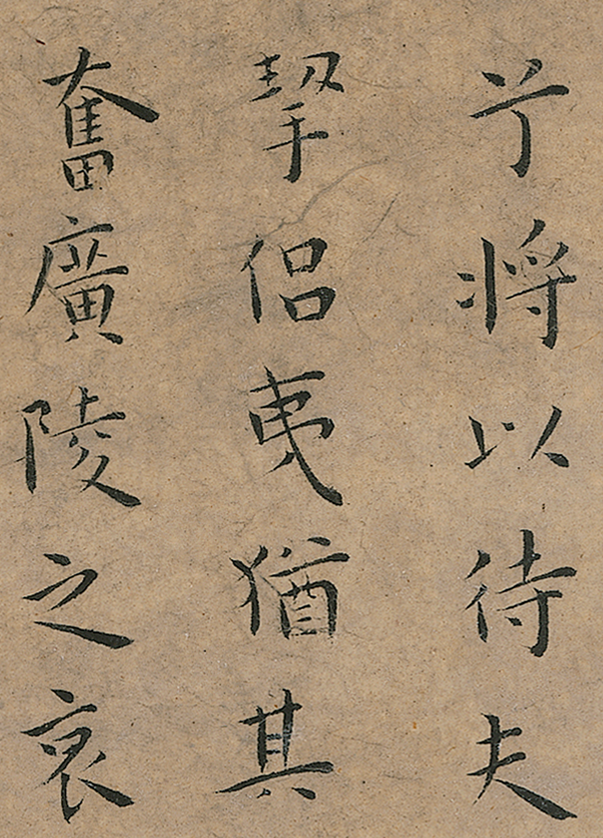 兮將以待夫
挈侣夷猶其
奮廣陵之哀